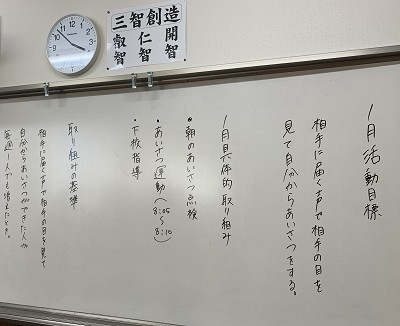 三智創造
開智
仁智
叡智
1月活動目標
相手に届く声で相手の目を
見て自分からあいさつをする。
1月具体的取り組み
●朝のあいさつ点検
・あいさつ運動(8:05〜8:10)
・下校指導
取り組みの基準
相手に届く声で相手の目を見て
自分からあいさつができた人が
毎週1人でも増えたとき。